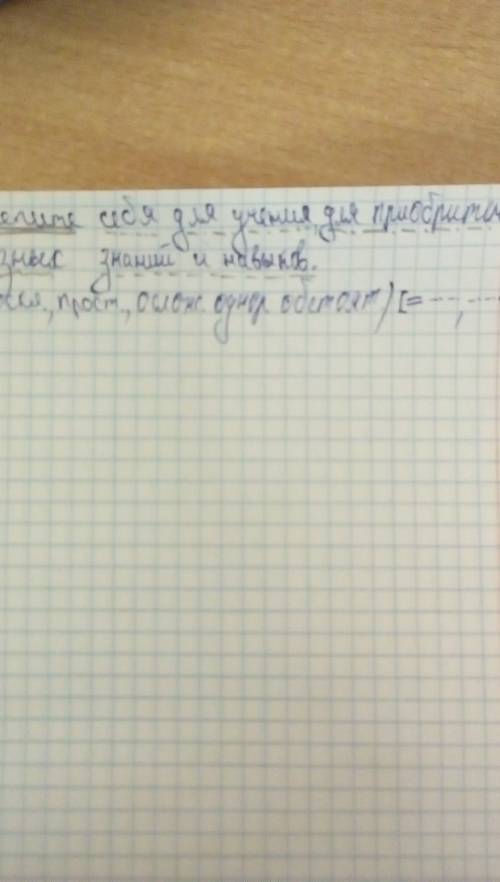 себя для учения, для приобрит
знаний и навыков.
прост., ослож. однор. обстоят) [= -·-·, -·-·